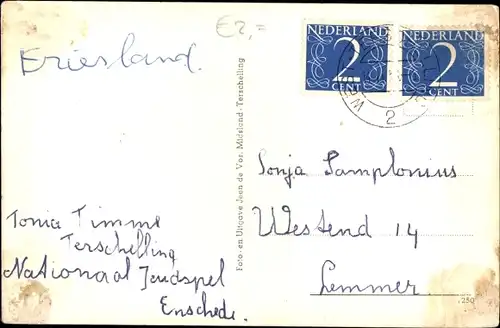 Friesland.
E2,=
NEDERLAND
2
CENT
NEDERLAND
2
CENT
2
Foto- en Uitgave Jeen de Vos, Midsland-Terschelling
Sonja Samplonius
Westend 14
Lemmer.
Tonia Timme
Terschelling
Nationaal Jeudspel
Enschede.
250